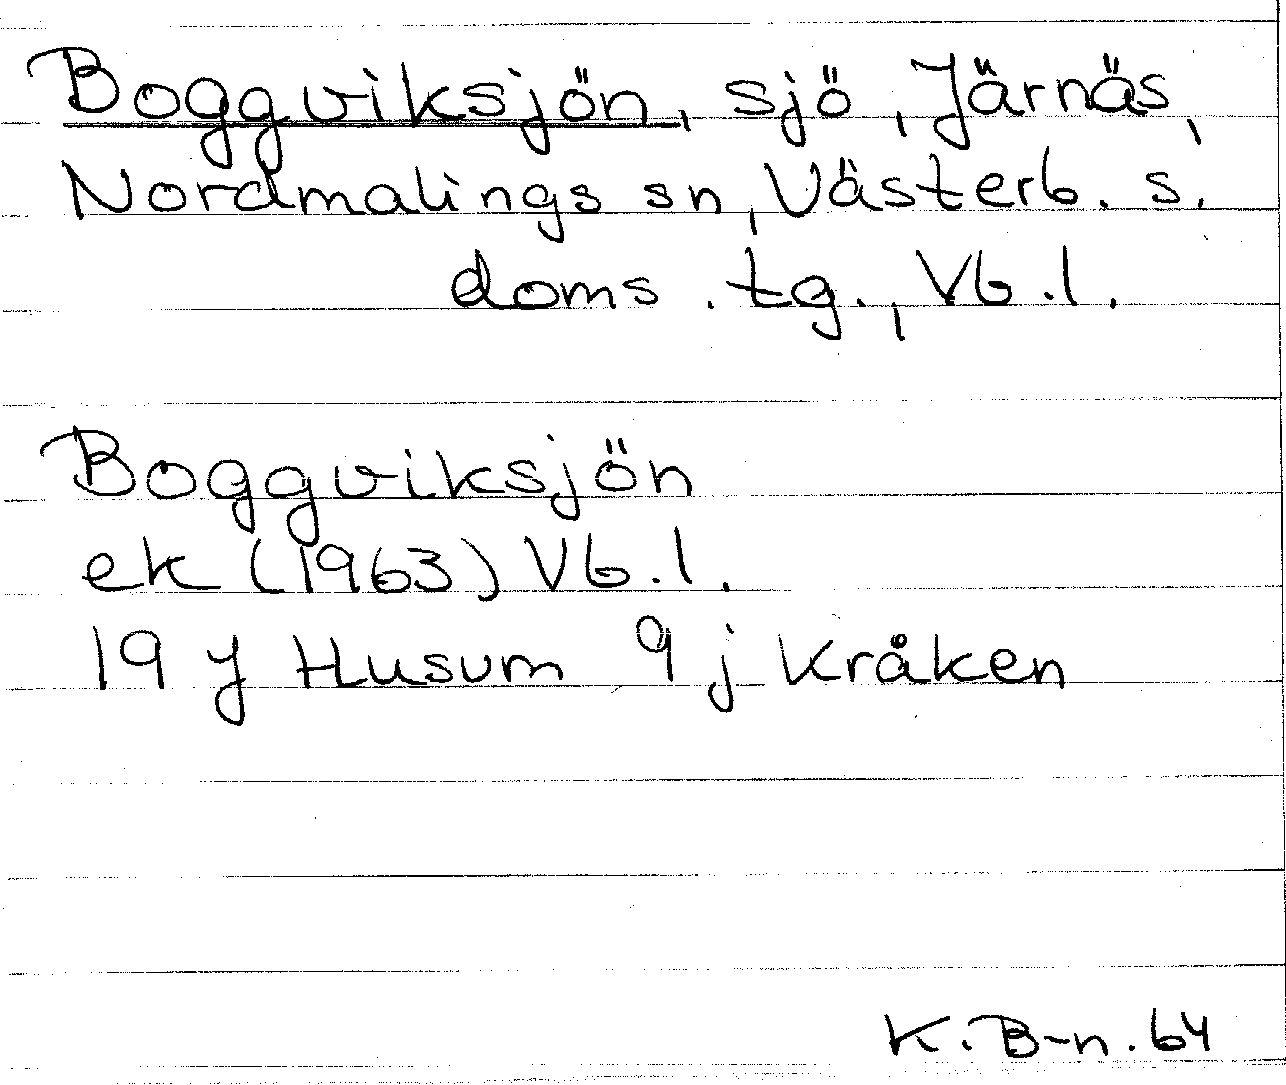 Boggviksjön, sjö, Järnäs,
Nordmalings sn, Västerb. s.
doms. tg., Vb. l.
Boggviksjön
ek (1963) Vb. l.
19 J Husum 9 j Kråken
K. B-n. 64